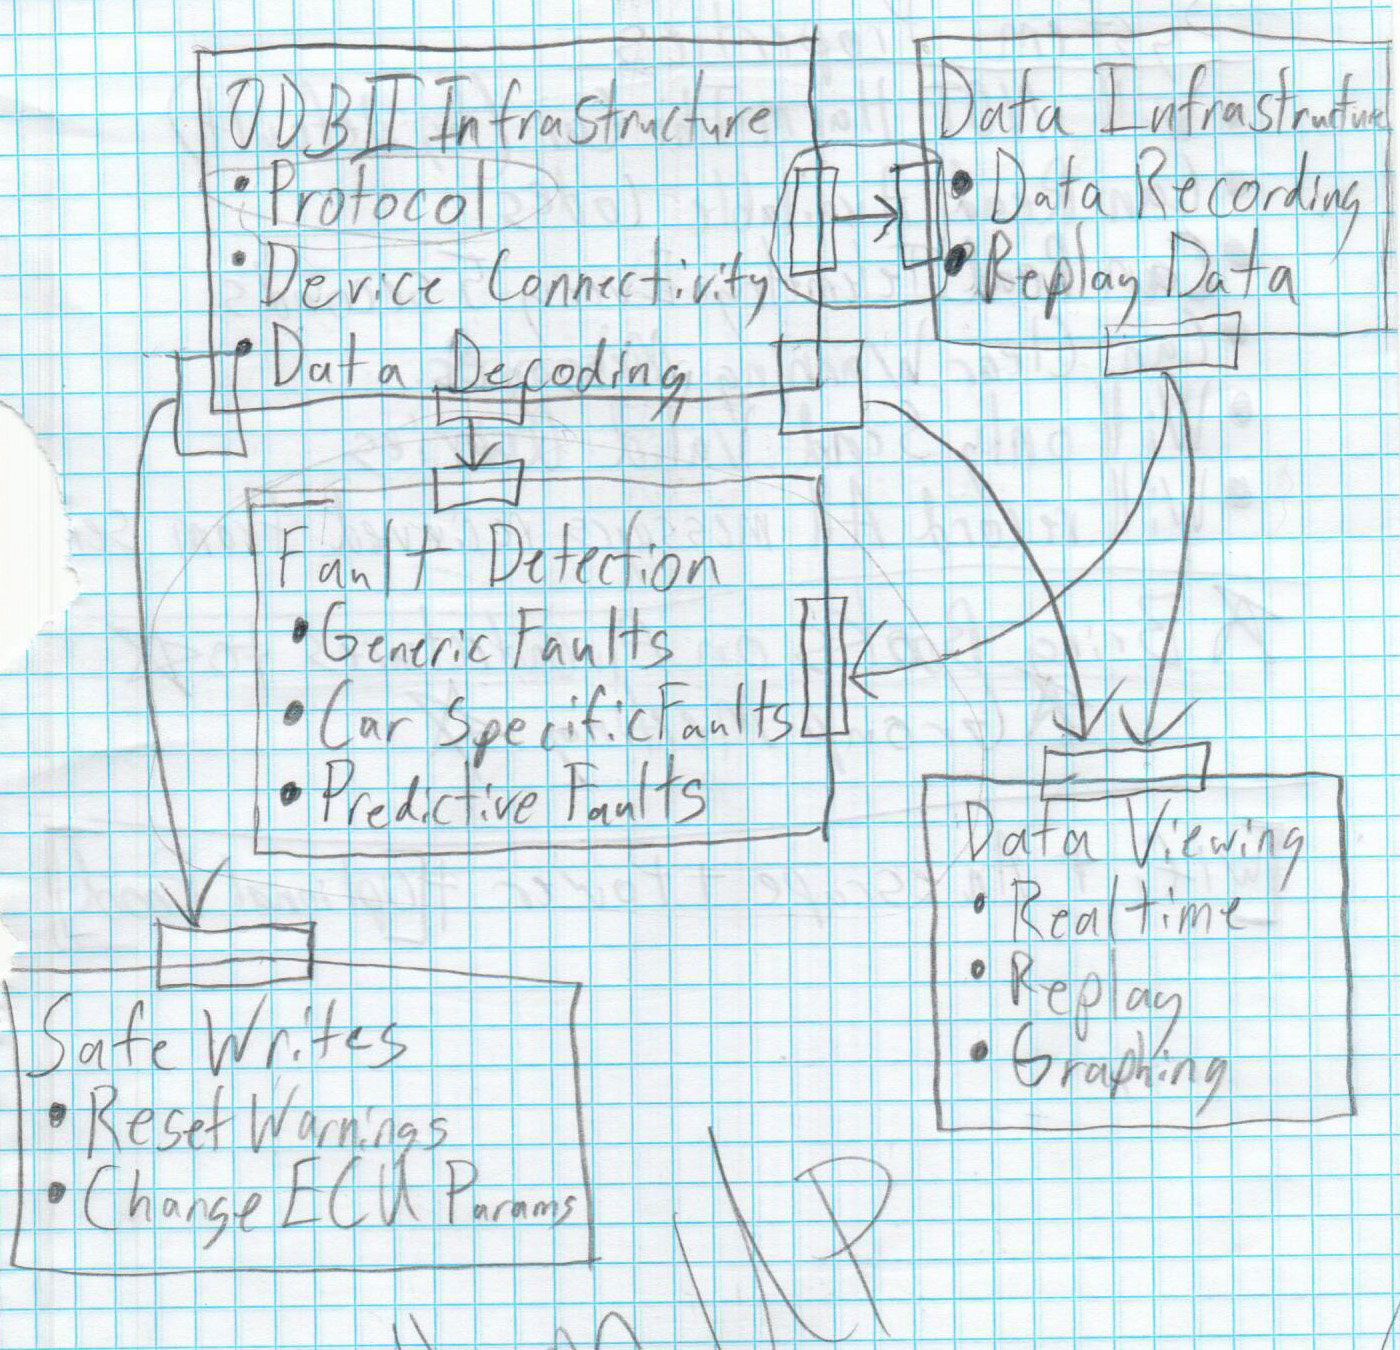 ODBII Infrastructure
• Protocol
• Device Connectivity
• Data Decoding
Data Infrastructure
• Data Recording
• Replay Data
Fault Detection
• Generic Faults
• Car Specific Faults
• Predictive Faults
Data Viewing
• Realtime
• Replay
• Graphing
Safe Writes
• Reset Warnings
• Change ECU Params